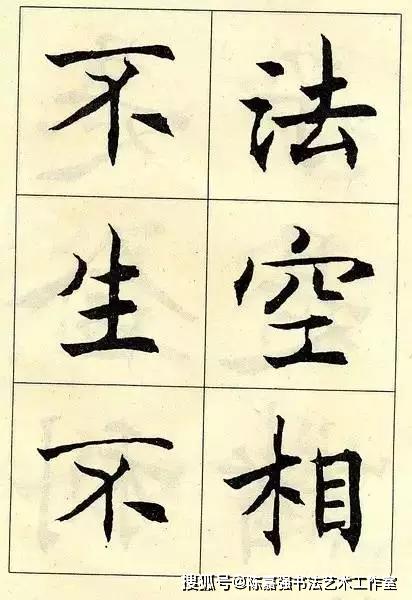 法空相
不生不
搜狐号@陈嘉强书法艺术工作室